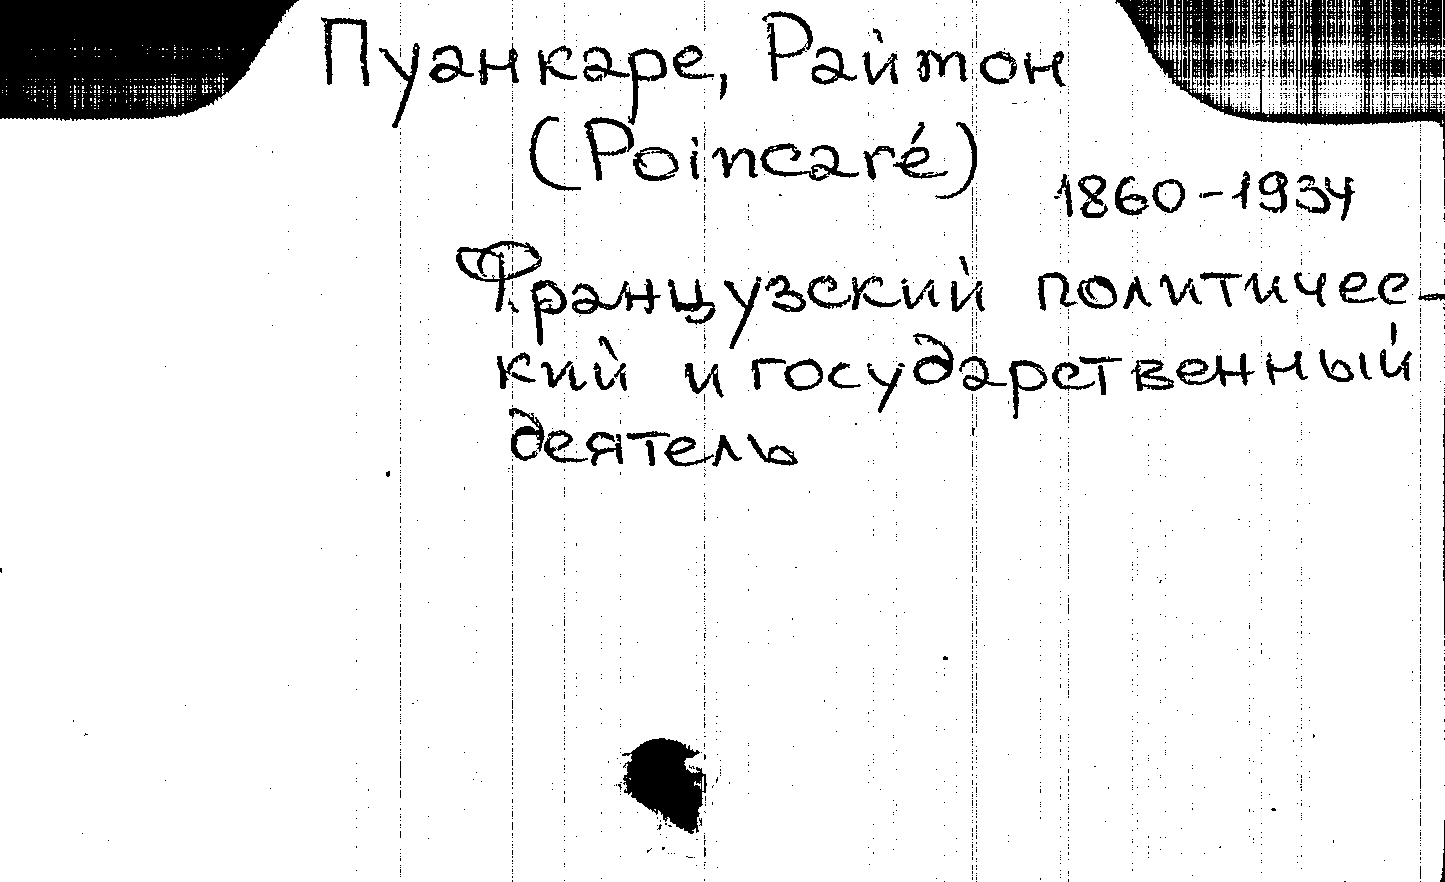 Пуанкаре, Райтон
(Poincaré)
1860-1934
Французский политичес-
кий и государственный
деятель